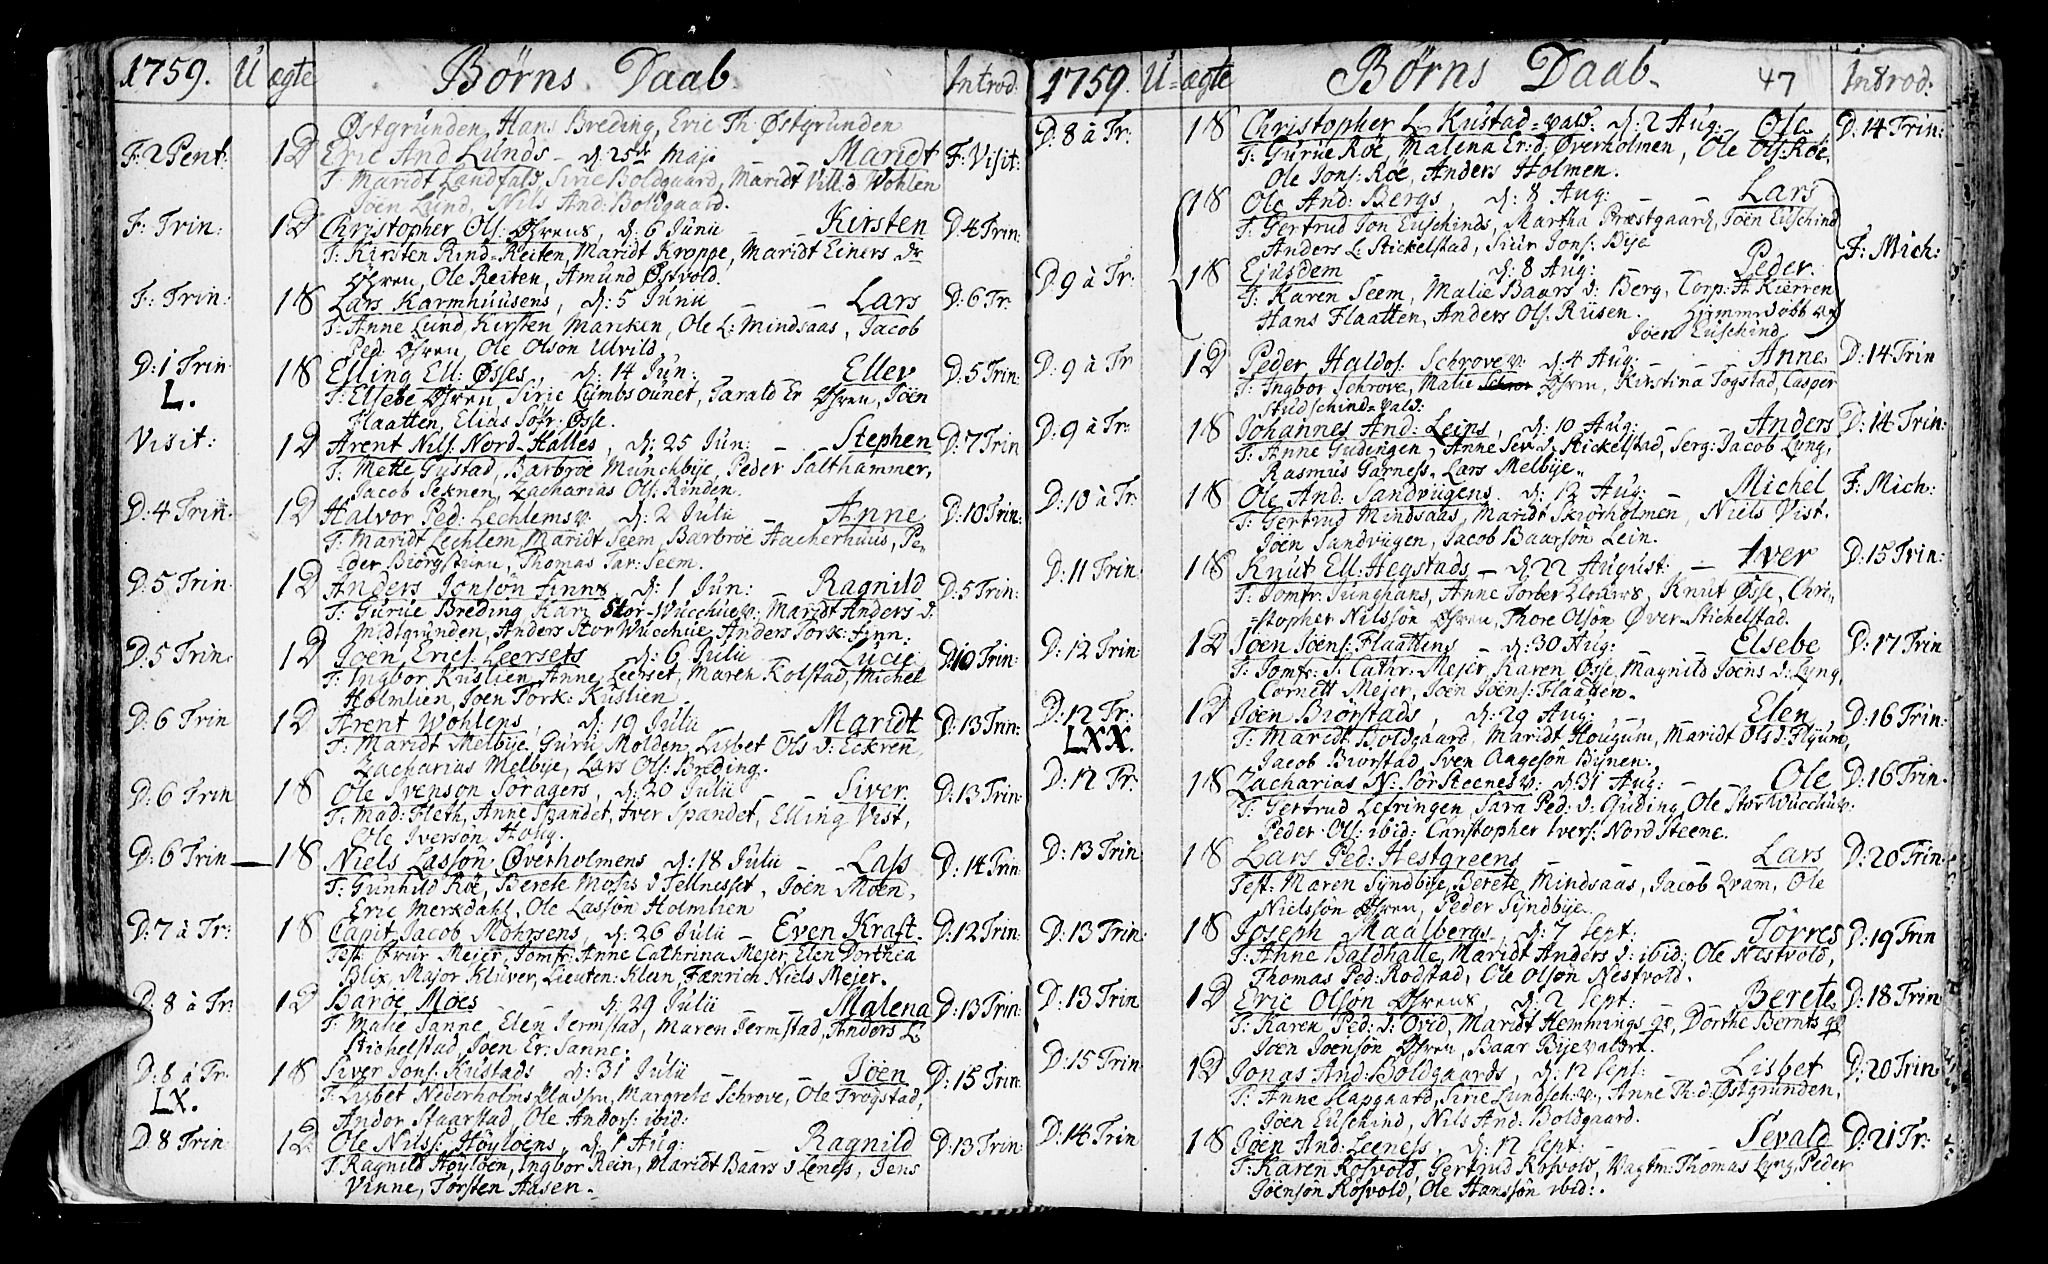 1759. U ægte Børns Daab. Introd:
Østgrunden, Hans Breding, Eric Th: Østgrunden
F: 2 Pent: 1 D Eric And Lunds d: 25de Maji Maridt F: Visit:
T: Maridt Landfald, Sirie Boldgaard, Maridt Vill: d. Wohlen
Joen Lund, Nils And: Boldgaard.
F: Trin: 1 D Christopher Ols: Øhrens, d: 6 Junii Kirsten D: 4 Trin:
T: Kirsten Rind-Reiten, Maridt Kroppe, Maridt Einers dr
Øhren, Ole Reiten, Amund Østvold.
F: Trin: 1 S Lars Karmhuusens, d: 5 Junii Lars D: 6 Tr.
T: Anne Lund, Kirsten Marcken, Ole L: Mindsaas, Jacob
Ped: Øhren, Ole Olson Ulvild
D: 1 Trin 1 S Elling Ell: Øsses d: 14 Jun: Ellev D: 5 Trin:
L. T: Elsebe Øhren, Sirie Lumbsounet, Tarald Er Øhren, Joen
Flaatten, Elias Søfr: Øsse.
Visit: 1 D Arent Nils: Nord-Halles, d: 25 Jun: Stephen D: 7 Trin
T: Mette Gystad, Barbroe Munchbye, Peder Salthammer,
Jacob Seknen, Zacharias Ols: Rinden.
D: 4 Trin: 1 D Halvor Ped: Lechlems v. d: 2 Julii Anne D: 10 Trin:
T: Maridt Lechlem, Maridt Seem, Barbroe Hackerhuus, Pe-
der Biørgstuen, Thomas Tar: Seem.
D: 5 Trin: 1 D Anders Jonsøn Finne, d: 1 Jun: Ragnild D: 5 Trin:
T: Gurue Breding, Kari Stor-Wucchue v: Maridt Anders d:
Midtgrunden, Anders Stor Wucchue, Anders Tork: Finn.
D: 5 Trin: 1 D Joen Erics: Leersets d: 6 Julii Lucie D: 10 Trin:
T: Ingbor Kuslien, Anne Leerset, Maren Kolstad, Michel
Holmlien, Joen Tork: Kuslien
D: 6 Trin 1 D Arent Wohlens, d: 19 Julii Maridt D: 13 Trin:
T: Maridt Melbye, Guru Molden, Lisbet Ols d: Eckren,
Zacharias Melbye, Lars Ols: Breding.
D: 6 Trin 1 S Ole Svenson Soragers, d: 20 Julii Siver D: 13 Trin:
T: Mad: Fleth, Anne Spandet, Iver Spandet, Elling Vist,
Ole Iverson Houg.
D: 6 Trin 1 S Niels Lassøn Øverholmens d: 18 Julii Lass D: 14 Trin:
T: Gunhild Røe, Berete Mosis d Tellnesset, Joen Moen,
Eric Merkdahl, Ole Lassøn Holmlien
D: 7 à Tr: 1 S Capit Jacob Mohrsens, d: 26 Julii Even Kraft. D: 12 Trin:
Test: Frur Mejer, Jomfr: Anne Cathrina Mejer, Elen Dorthea
Blix, Major Kluver, Lieuten: Klein, Fænrich Niels Mejer.
D: 8 à Tr: 1 D Baroe Moes d: 29 Julii Malena D: 13 Trin:
T: Malie Sanne, Elen Jermstad, Maren Jermstad, Anders L
Stichelstad, Joen Er: Sanne.
D: 8 à Tr: 1 S Siver Jons: Kustads d: 31 Julii Joen D: 15 Trin:
LX. T: Lisbet Nederholms Pladsen, Margrete Schrove, Ole Trøgstad,
Andor Staarstad, Ole Andors: ibid:
D: 8 Trin: 1 D. Ole Nilss: Høyloens, d: 1 Aug: Ragnild D: 13 Trin:
T: Ragnild Høyloen, Ingbor Rein, Maridt Baars d Leness, Jens
Vinne, Torsten Aasen.
1759. U- ægte Børns Daab. 47 Introd:
D: 8 à Tr: 1 S Christopher L Kustad-vald: d: 2 Aug: Ole D: 14 Trin:
T: Gurue Røe, Malena Er: d: Øverholmen, Ole Ols: Røe,
Ole Jons: Røe, Anders Holmen.
1 S Ole And: Bergs, d: 8 Aug: Lars
T: Gertrud Jon Euschinds, Martha Præstgaard, Joen Euschind
Anders L: Stickelstad, Siur Jons: Bye F: Mich:
D: 9 à Tr: 1 S Ejusdem d: 8 Aug: Peder.
T: Karen Seem, Malie Baars d: Berg, Corp: A Kierren
Hans Flaatten, Anders Ols: Riisen. Hiemmedøbt af
Joen Euschind
D: 9 à Tr 1 D Peder Haldos: Schrove v: d: 4 Aug: Anne D: 14 Trin
T: Ingbor Schrove, Malie Øhren, Kirstina Togstad, Casper
Studschind-vald:
D: 9 à Tr: 1 S Johannes And: Leins, d: 10 Aug: Anders D: 14 Trin:
T: Anne Gudingen, Anne Sev d: Stickelstad, Serg: Jacob Lyng,
Rasmus Garness, Lars Melbye.
D: 10 à Tr 1 S Ole And: Sandvugens. d: 12 Aug: Michel F: Mich:
T: Gertrud Mindsaas, Maridt Skiørholmen, Niels Vist.
Joen Sandvugen, Jacob Baarson Lein.
D: 11 Trin: 1 S Knut Ell: Hegstads d: 22 August: Iver D: 15 Trin:
T: Jomfr: Junghans, Anne Torber Zlouws, Knut Øsse, Chri-
stopher Nilssøn Øhren, Thore Olsøn Øver-Stichelstad.
D: 12 Trin 1 D Joen Joens: Flaattens d: 30 Aug: Elsebe D: 17 Trin
T: Jomfr: S. Cathr: Mejer, Karen Øsse, Magnild Joens d: Lyng,
Cornett Mejer, Joen Joens: Flaatten.
D: 12 Tr: 1 D Joen Biørstads, d: 29 Aug: Elen D: 16 Trin:
LXX. T: Maridt Boldgaard, Maridt Hougum, Maridt Ols d: Flyum,
Jacob Biorstad, Sven Aagesøn Bynen.
D: 12 Tr. 1 S Zacharias N: Sør Steenes v: d: 31 Aug: Ole D: 16 Trin.
T: Gertrud Lefringen, Sara Ped: d: Guding, Ole Stor Wucchu v:
Peder Ols: ibid: Christopher Ivers: Nord Steene.
D: 13 Trin 1 S Lars Ped: Hestgreens Lars D: 20 Trin
Test: Maren Syndbye, Berete Mindsaas, Jacob Qvam, Ole
Nielssøn Øhren, Peder Syndbye.
D: 13 Trin: 1 S Joseph Maalbergs, d: 7 Sept: Törres D: 19 Trin
T: Anne Baldhalle, Maridt Anders d: ibid: Ole Nestvold,
Thomas Ped: Rodstad, Ole Olsøn Nestvold.
D: 13 Trin 1 D Eric Olsøn Øhrens, d: 2 Sept: Berete D: 18 Trin
T: Karen Ped: d: Ovid, Maridt Hemmings qv, Dorthe Bernts qv
Joen Joensøn Øhren, Baar Bye valdrt.
D: 15 Trin 1 D Jonas And: Boldgaards, d: 12 Sept: Lisbet D: 20 Trin
T: Anne Slapgaard, Sirie Lundsch: v., Anne Th: d: Østgrunden,
Joen Euschind, Nils And: Boldgaard.
D: 14 Trin 1 S Joen And: Leeness, d: 12 Sept: Sevald D: 21 Tr:
T: Karen Rosvold, Gertrud Rosvold, Vagtm: Thomas Lyng, Peder
Joensøn Rosvold, Ole Hanssøn ibid:.